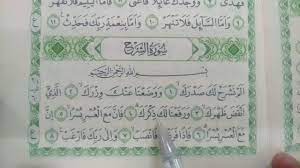 فَهَدَىٰ ٧ وَوَجَدَكَ عَائِلًا فَأَغْنَىٰ ٨ فَأَمَّا الْيَتِيمَ فَلَا تَقْهَرْ
٩ وَأَمَّا السَّائِلَ فَلَا تَنْهَرْ ١٠ وَأَمَّا بِنِعْمَةِ رَبِّكَ فَحَدِّثْ ١١
سُورَةُ الشَّرْحِ
بِسْمِ اللَّهِ الرَّحْمَٰنِ الرَّحِيمِ
أَلَمْ نَشْرَحْ لَكَ صَدْرَكَ ١ وَوَضَعْنَا عَنْكَ وِزْرَكَ ٢ الَّذِي
أَنْقَضَ ظَهْرَكَ ٣ وَرَفَعْنَا لَكَ ذِكْرَكَ ٤ فَإِنَّ مَعَ الْعُسْرِ يُسْرًا ٥ إِنَّ
مَعَ الْعُسْرِ يُسْرًا ٦ فَإِذَا فَرَغْتَ فَانْصَبْ ٧ وَإِلَىٰ رَبِّكَ فَارْغَبْ ٨